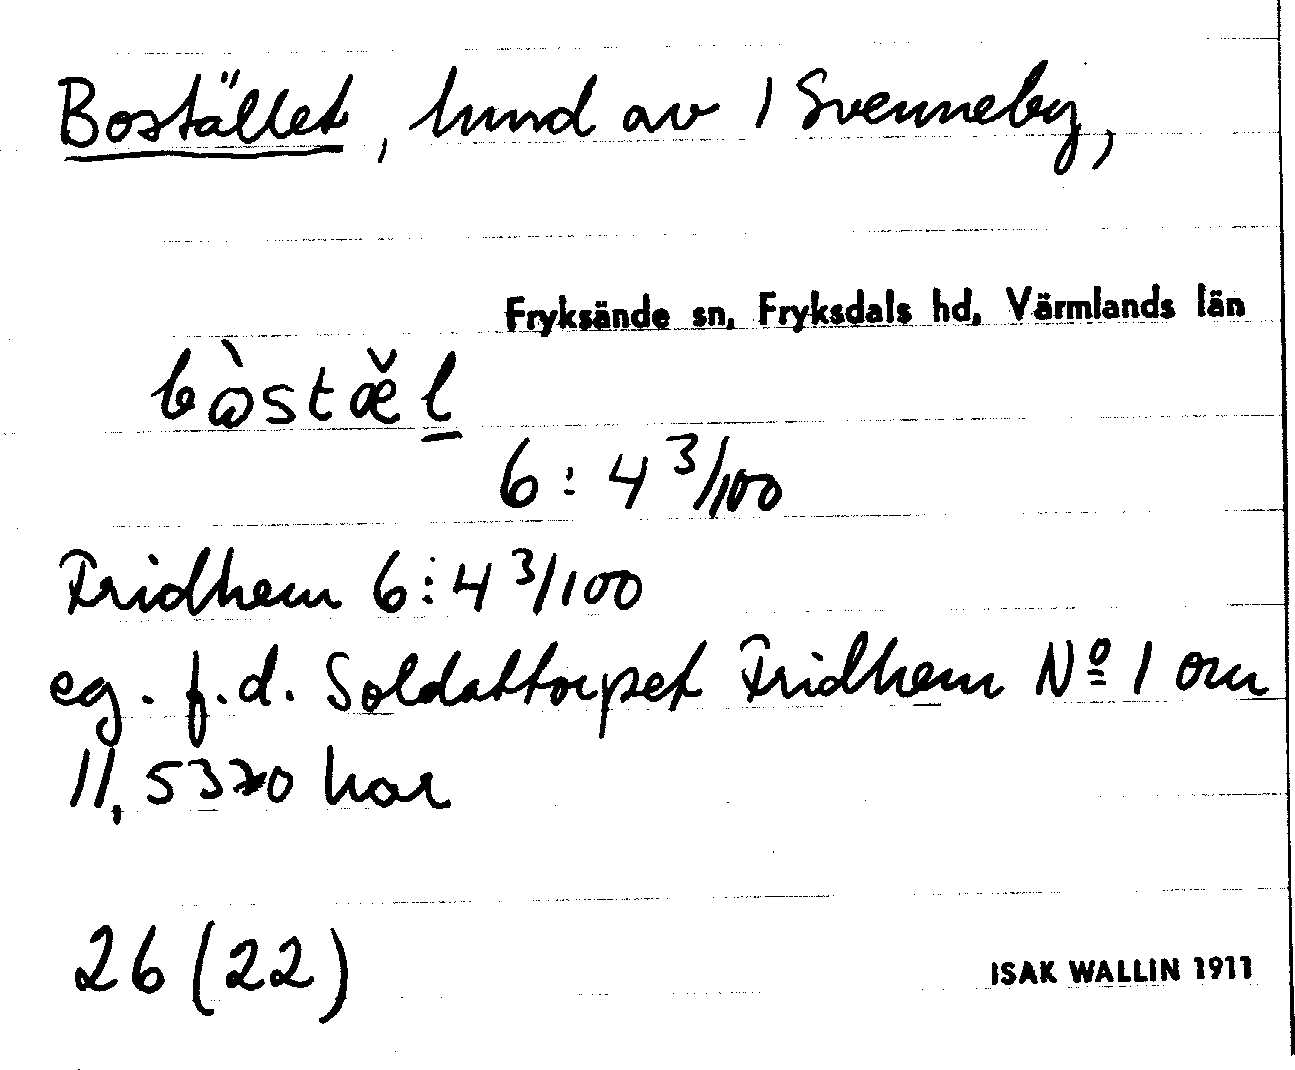 Bostället, hmnd av 1 Svenneby,
Fryksände sn, Fryksdals hd, Värmlands län
bòstæ̌l̲
6:4 3/100
Fridhem 6:4 3/100
eg. f.d. Soldattorpet Fridhem Nº 1 om
11,5320 har
26 (22)
ISAK WALLIN 1911